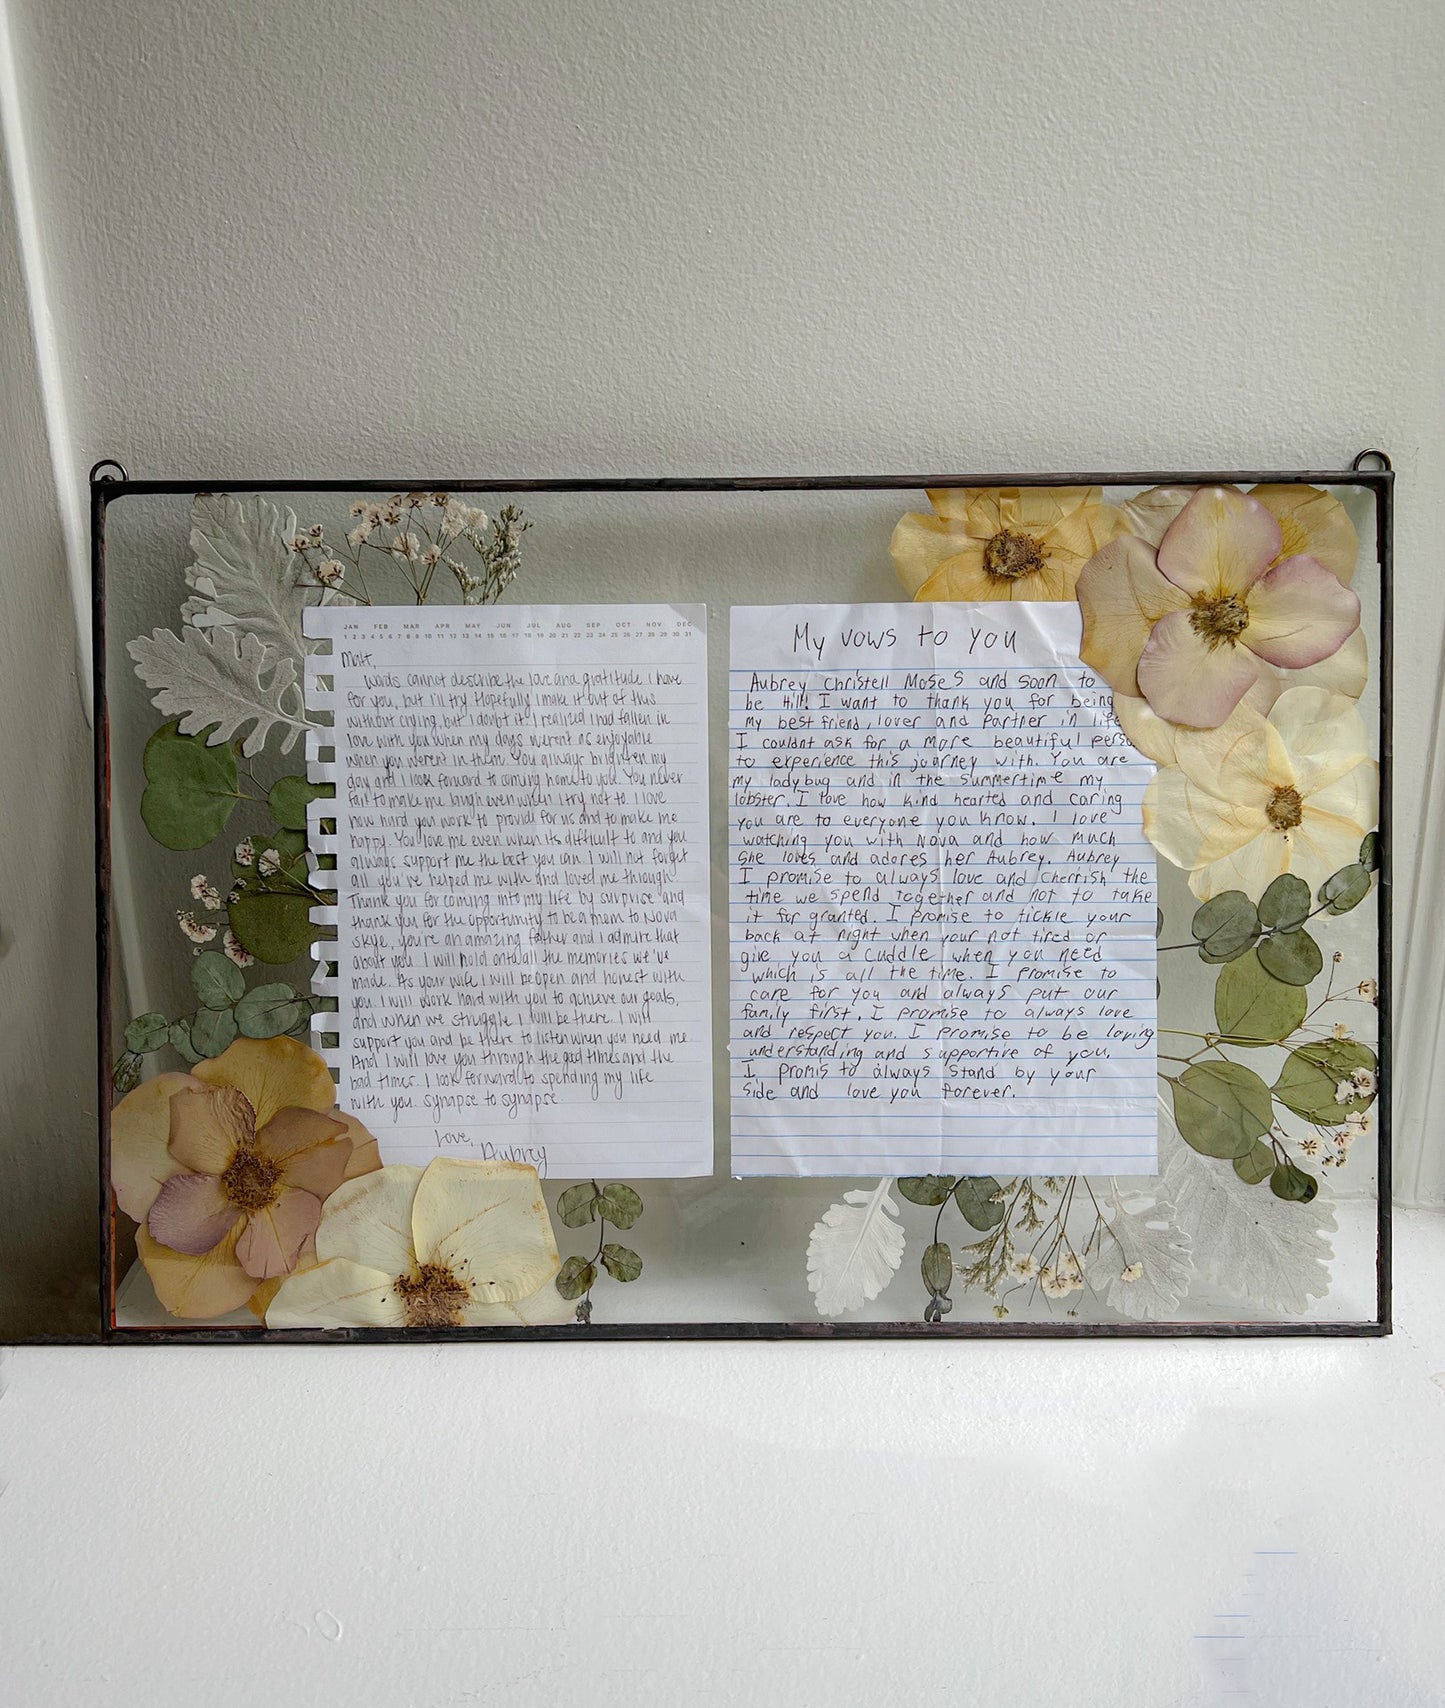 JAN FEB MAR APR MAY JUN JUL AUG SEP OCT NOV DEC
1 2 3 4 5 6 7 8 9 10 11 12 13 14 15 16 17 18 19 20 21 22 23 24 25 26 27 28 29 30 31
Matt,
Words cannot describe the love and gratitude I have
for you, but I'll try. Hopefully I make it out of this
without crying, but I doubt it. I realized I had fallen in
love with you when my days weren't as enjoyable
when you weren't in them. You always brighten my
day and I look forward to coming home to you. You never
fail to make me laugh even when I try not to. I love
how hard you work to provide for us and to make me
happy. You love me even when its difficult to and you
always support me the best you can. I will not forget
all you've helped me with and loved me through.
Thank you for coming into my life by surprise and
thank you for the opportunity to be a mom to Nova
Skye, you're an amazing father and I admire that
about you. I will hold onto all the memories we've
made. As your wife I will be open and honest with
you. I will work hard with you to achieve our goals,
and when we struggle I will be there. I will
support you and be there to listen when you need me.
And I will love you through the good times and the
bad times. I look forward to spending my life
with you. synapse to synapse.
Love,
Aubrey
My vows to you
Aubrey Christell Moses and soon to
be Hill! I want to thank you for being
my best friend, lover and partner in life
I couldnt ask for a more beautiful
to experience this journey with. You are
my ladybug and in the summertime my
lobster. I love how kind hearted and caring
you are to everyone you know. I love
watching you with Nova and how much
she loves and adores her Aubrey. Aubrey
I promise to always love and cherrish the
time we spend together and not to take
it for granted. I promise to tickle your
back at night when your not tired or
give you a cuddle when you need
which is all the time. I promise to
care for you and always put our
family first. I promise to always love
and respect you. I promise to be loving
understanding and supportive of you.
I promis to always stand by your
side and love you forever.